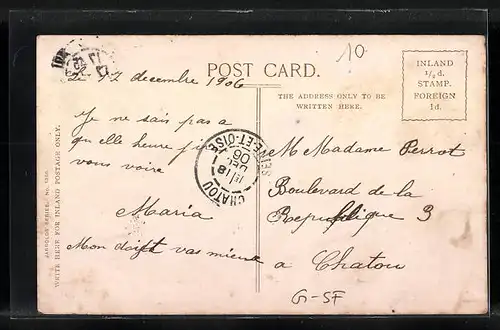 10
POST CARD.
INLAND
½ d.
STAMP.
FOREIGN
1d.
THE ADDRESS ONLY TO BE
WRITTEN HERE.
le 17 decembre 1906
Je ne sais pas a
qu elle heure
vous voire
Maria
Mon doigt vas mieux
M Madame Perrot
Boulevard de la
Republique 3
a Chatou
G-SF
CHATOU
SEINE-ET-OISE
18
DEC
06
WRITE HERE FOR INLAND POSTAGE ONLY.